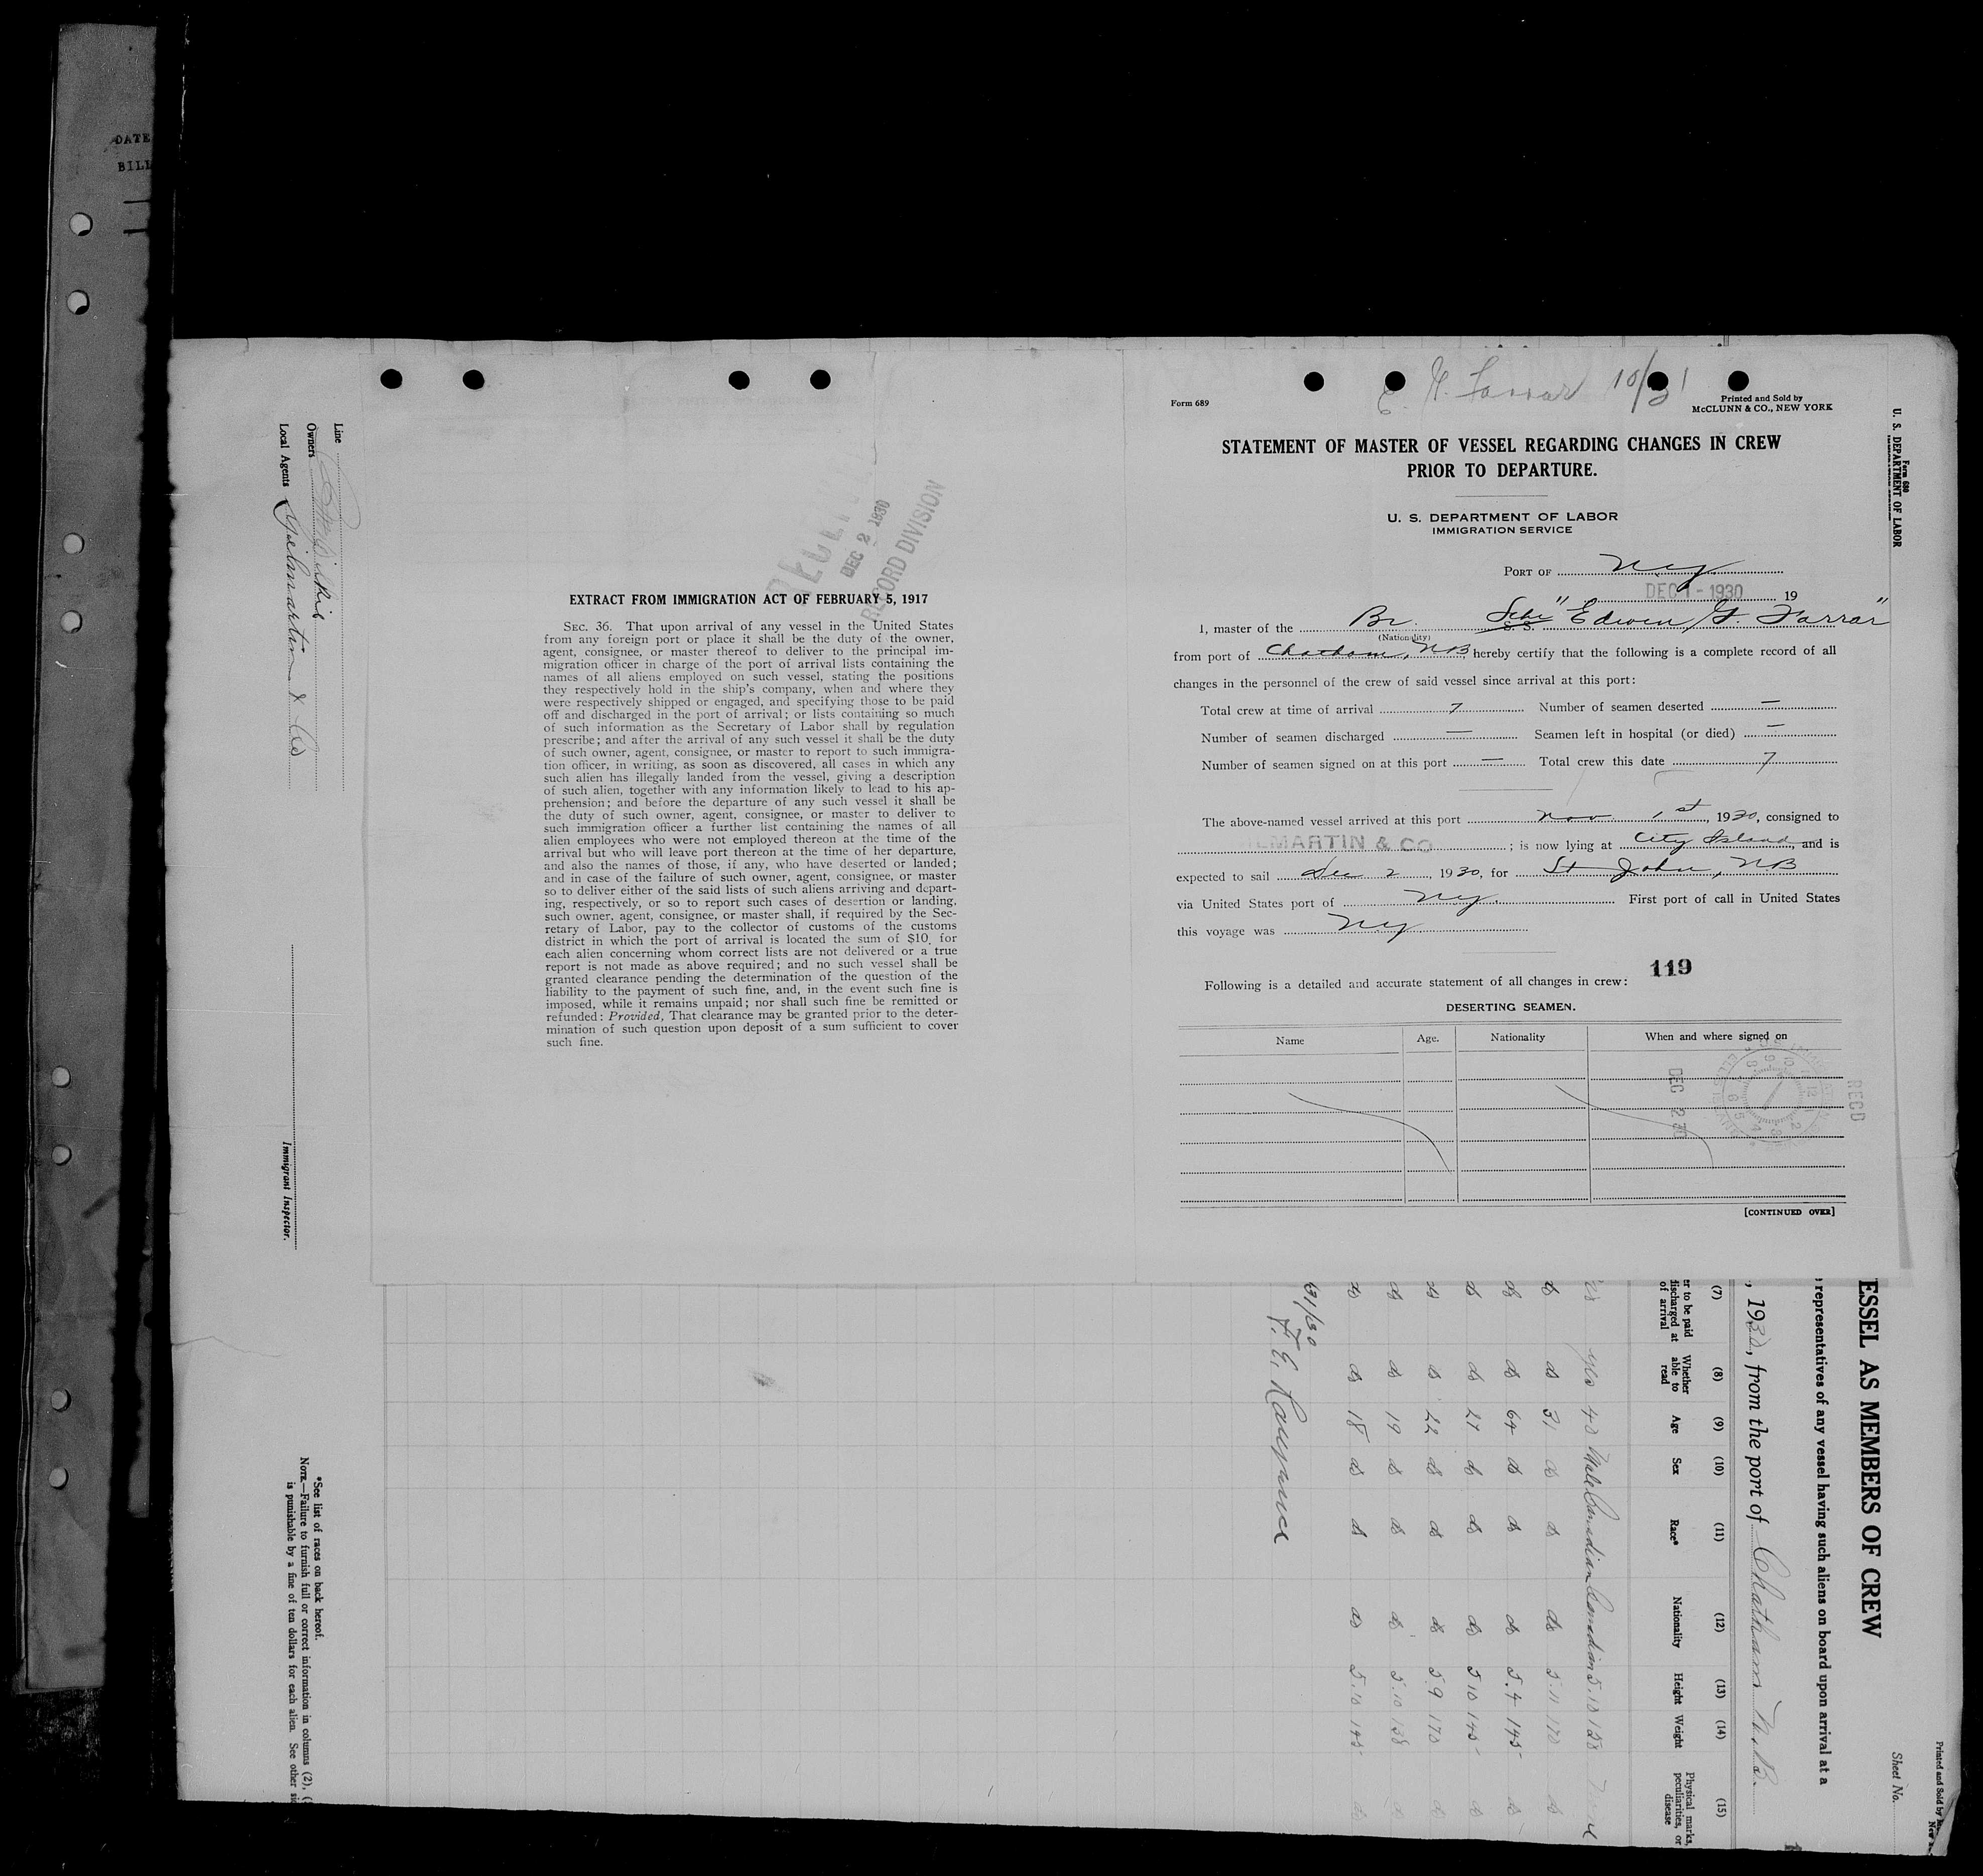 DATE
BILL
Line
Owners
Local Agents Gilmartin & Co
Immigrant Inspector.
*See list of races on back hereof.
NOTE.—Failure to furnish full or correct information in columns (2), (
is punishable by a fine of ten dollars for each alien. See other sid
DEC 2 1930
RECORD DIVISION
EXTRACT FROM IMMIGRATION ACT OF FEBRUARY 5, 1917
SEC. 36. That upon arrival of any vessel in the United States
from any foreign port or place it shall be the duty of the owner,
agent, consignee, or master thereof to deliver to the principal im-
migration officer in charge of the port of arrival lists containing the
names of all aliens employed on such vessel, stating the positions
they respectively hold in the ship's company, when and where they
were respectively shipped or engaged, and specifying those to be paid
off and discharged in the port of arrival; or lists containing so much
of such information as the Secretary of Labor shall by regulation
prescribe; and after the arrival of any such vessel it shall be the duty
of such owner, agent, consignee, or master to report to such immigra-
tion officer, in writing, as soon as discovered, all cases in which any
such alien has illegally landed from the vessel, giving a description
of such alien, together with any information likely to lead to his ap-
prehension; and before the departure of any such vessel it shall be
the duty of such owner, agent, consignee, or master to deliver to
such immigration officer a further list containing the names of all
alien employees who were not employed thereon at the time of the
arrival but who will leave port thereon at the time of her departure,
and also the names of those, if any, who have deserted or landed;
and in case of the failure of such owner, agent, consignee, or master
so to deliver either of the said lists of such aliens arriving and depart-
ing, respectively, or so to report such cases of desertion or landing,
such owner, agent, consignee, or master shall, if required by the Sec-
retary of Labor, pay to the collector of customs of the customs
district in which the port of arrival is located the sum of $10 for
each alien concerning whom correct lists are not delivered or a true
report is not made as above required; and no such vessel shall be
granted clearance pending the determination of the question of the
liability to the payment of such fine, and, in the event such fine is
imposed, while it remains unpaid; nor shall such fine be remitted or
refunded: Provided, That clearance may be granted prior to the deter-
mination of such question upon deposit of a sum sufficient to cover
such fine.
E. G. Farrar 10/31
Form 689
Printed and Sold by
McCLUNN & CO., NEW YORK
STATEMENT OF MASTER OF VESSEL REGARDING CHANGES IN CREW
PRIOR TO DEPARTURE.
U. S. DEPARTMENT OF LABOR
IMMIGRATION SERVICE
PORT OF NY
DEC 1 - 1930 19
I, master of the Br. S.S. Schr "Edwin G. Farrar"
(Nationality)
from port of Chatham, NB hereby certify that the following is a complete record of all
changes in the personnel of the crew of said vessel since arrival at this port:
Total crew at time of arrival 7 Number of seamen deserted —
Number of seamen discharged — Seamen left in hospital (or died) —
Number of seamen signed on at this port — Total crew this date 7
The above-named vessel arrived at this port Nov 1st, 1930, consigned to
MARTIN & CO ; is now lying at City Island, and is
expected to sail Dec 2, 1930, for St John, NB
via United States port of NY. First port of call in United States
this voyage was NY
119
Following is a detailed and accurate statement of all changes in crew:
DESERTING SEAMEN.
Name Age. Nationality When and where signed on
DEC 2 30
RECD
[CONTINUED OVER]
Form 680
U. S. DEPARTMENT OF LABOR
Printed and Sold by
Sheet No.
ESSEL AS MEMBERS OF CREW
representatives of any vessel having such aliens on board upon arrival at a
, 1930, from the port of Chatham N.B.
(7) (8) (9) (10) (11) (12) (13) (14) (15)
er to be paid
discharged at
of arrival
Whether
able to
read
Age
Sex
Race*
Nationality
Height
Weight
Physical marks,
peculiarities, or
disease
yes 40 Male Canadian Canadian 5.10 158 None
do do 31 do do do 5.11 170 do
do do 64 do do do 5.4 145 do
do do 21 do do do 5.10 145 do
do do 22 do do do 5.9 170 do
do do 19 do do do 5.10 138 do
do do 18 do do do 5.10 145 do